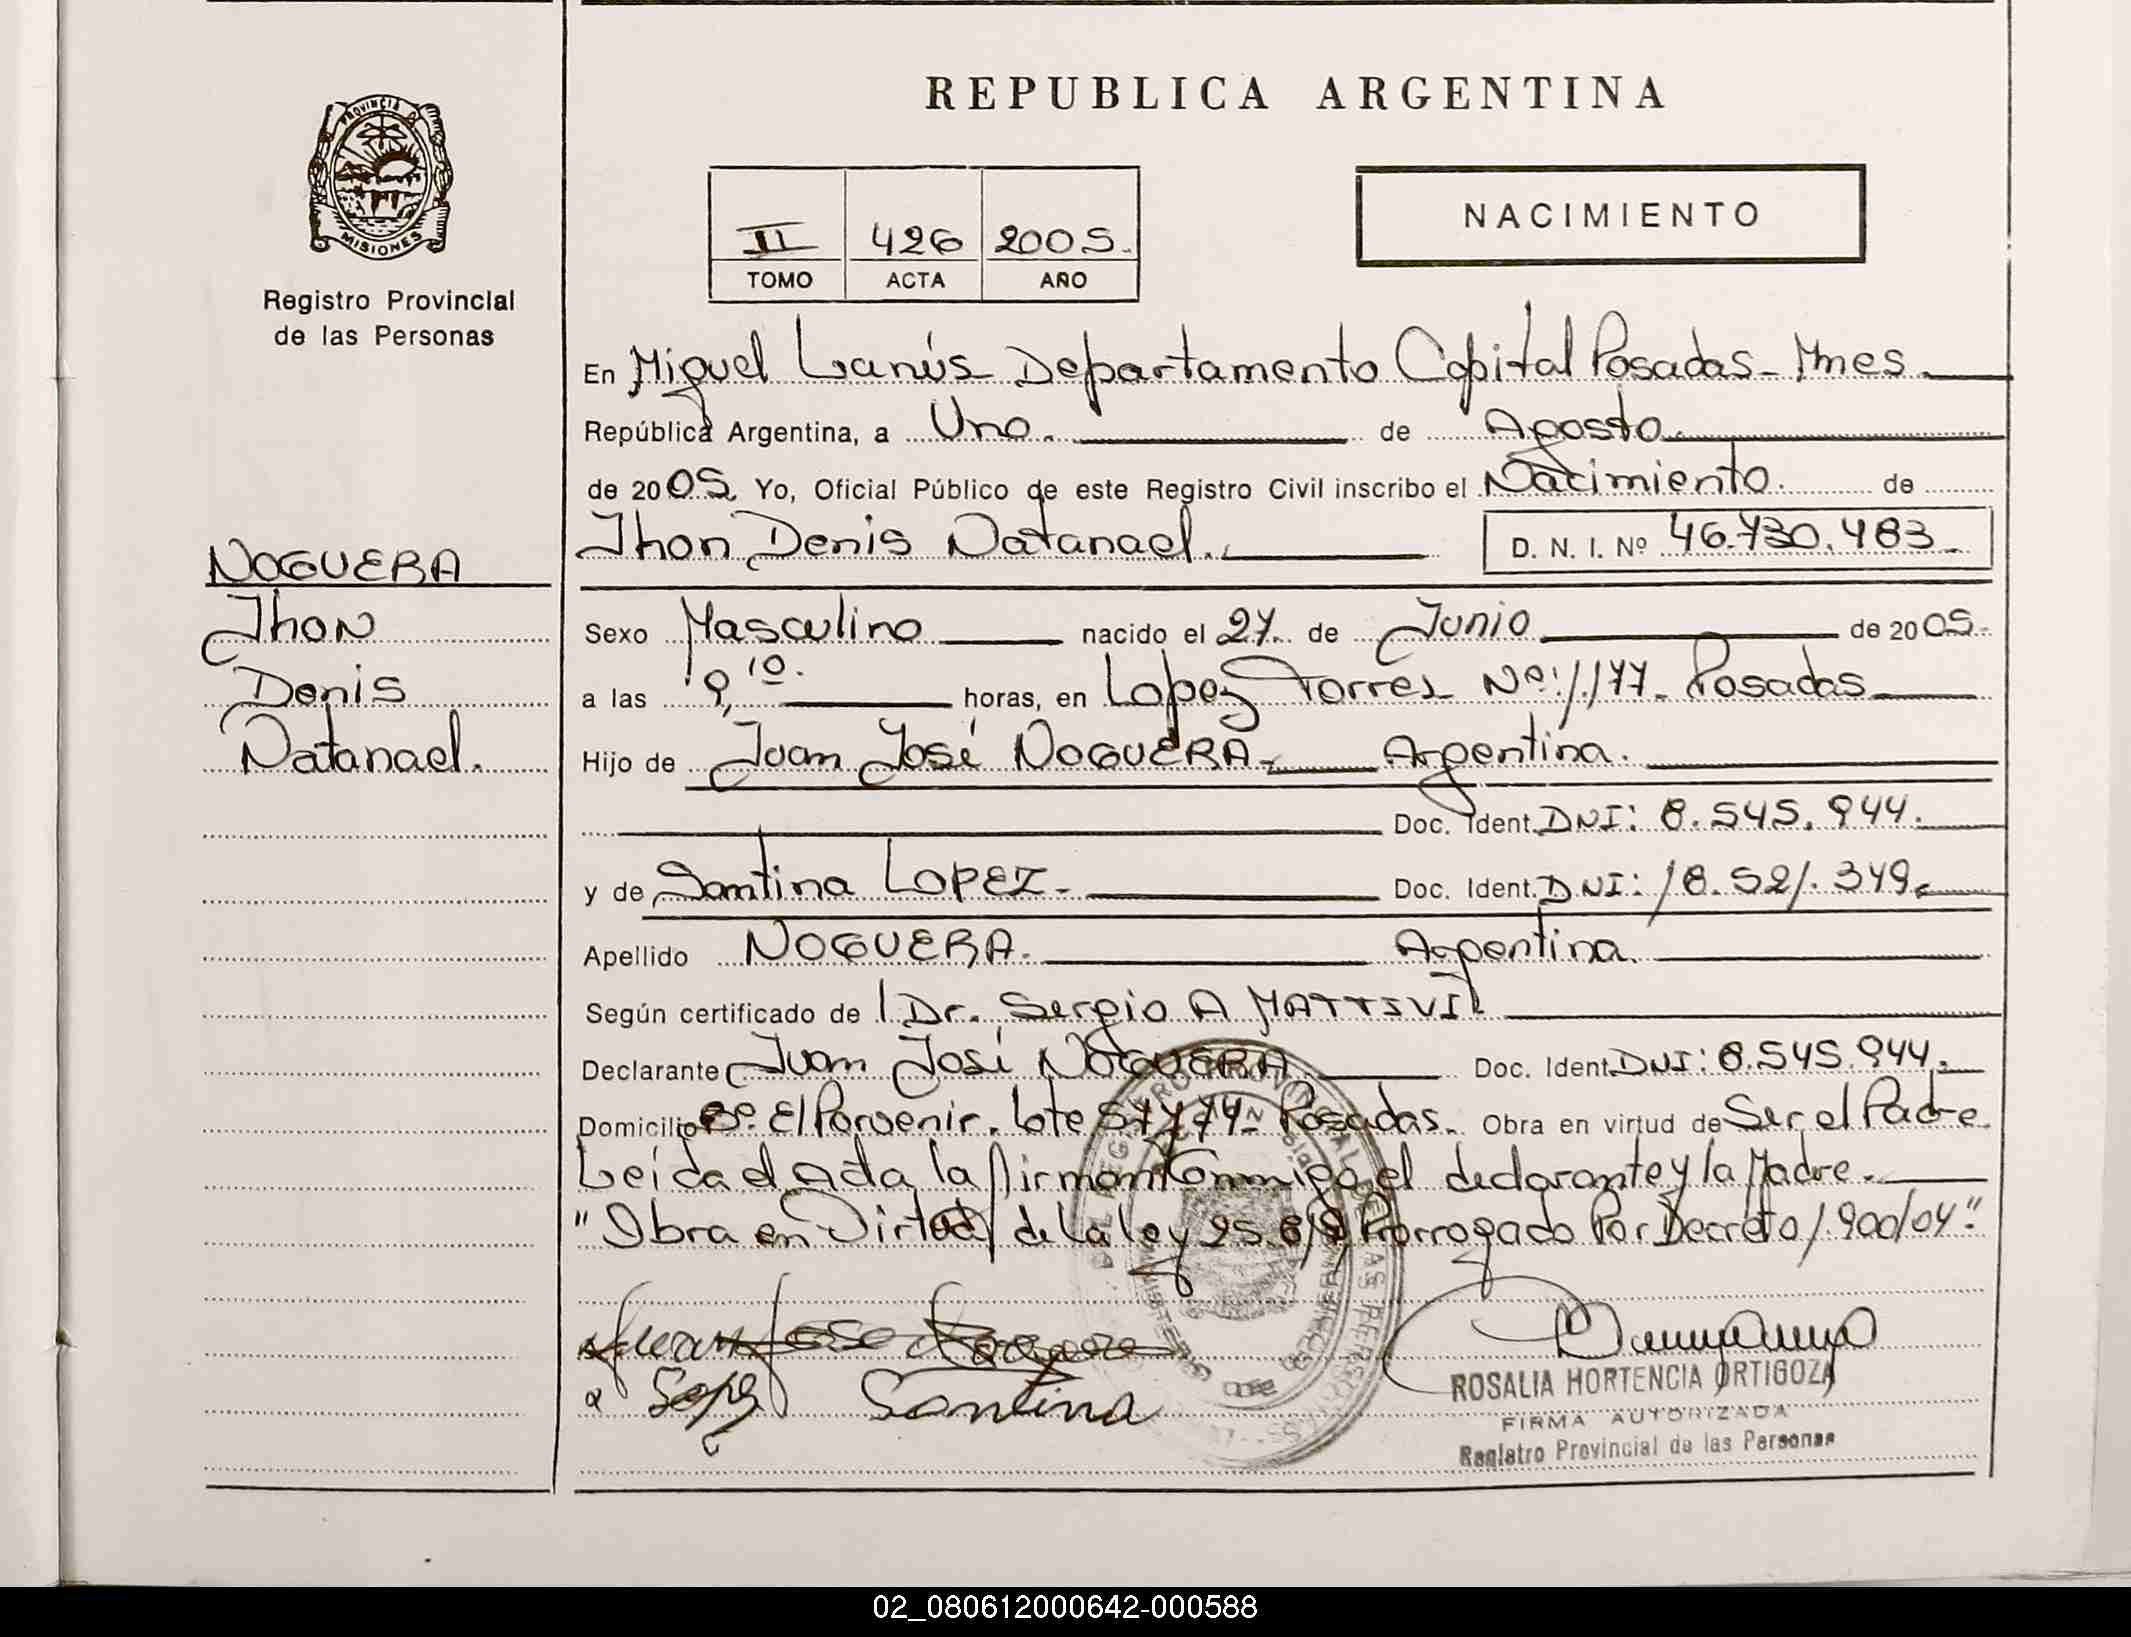 REPUBLICA ARGENTINA
PROVINCIA D
MISIONES
Registro Provincial
de las Personas
NACIMIENTO
II 426 2005.
TOMO ACTA AÑO
En Miguel Lanús Departamento Capital Posadas - Mnes.
República Argentina, a Uno. de Agosto.
de 2005. Yo, Oficial Público de este Registro Civil inscribo el Nacimiento. de
Jhon Denis Natanael. D. N. I. Nº 46.730.483
NOGUERA
Jhon
Denis
Natanael.
Sexo Masculino nacido el 27. de Junio de 2005.
a las 9,10. horas, en Lopez Torres Nº: 1.177 - Posadas
Hijo de Juan José NOGUERA - Argentina.
Doc. Ident. DNI: 8.545.944.
y de Santina LOPEZ - Doc. Ident. DNI: 18.521.349.
Apellido NOGUERA. Argentina.
Según certificado de l Dr. Sergio A
Declarante Juan José NOGUERA. Doc. Ident. DNI: 8.545.944.
Domicilio Bº. El Porvenir. lote Posadas. Obra en virtud de Ser el Padre.
Leída el Acta, la firman Conmigo el declarante y la Madre.
"Obra en Virtud de la ley 25.819 Prorrogado Por Decreto 1.900/04."
Juan Jose Noguera
Santina
ROSALIA HORTENCIA ORTIGOZA
FIRMA AUTORIZADA
Registro Provincial de las Personas
02_080612000642-000588